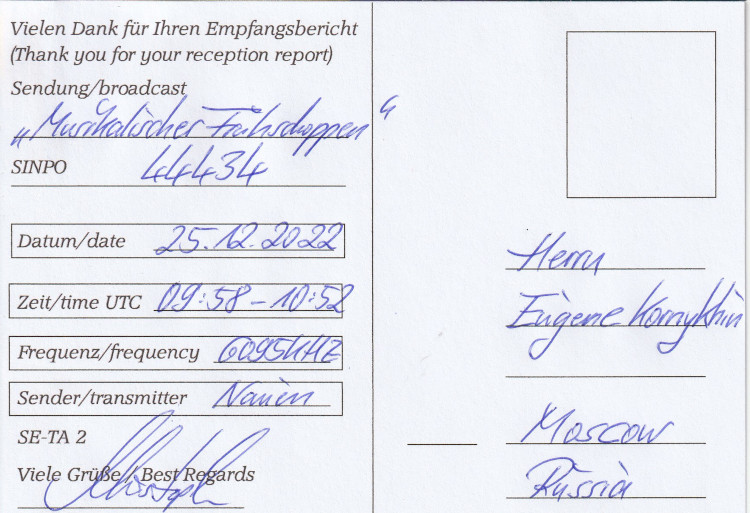 Vielen Dank für Ihren Empfangsbericht
(Thank you for your reception report)
Sendung/broadcast
„Musikalischer Frühschoppen“
SINPO 44434
Datum/date 25.12.2022
Zeit/time UTC 09:58-10:52
Frequenz/frequency 6095kHZ
Sender/transmitter Nauen
SE-TA 2
Viele Grüße / Best Regards
Christoph
Herrn
Eugene
Moscow
Russia